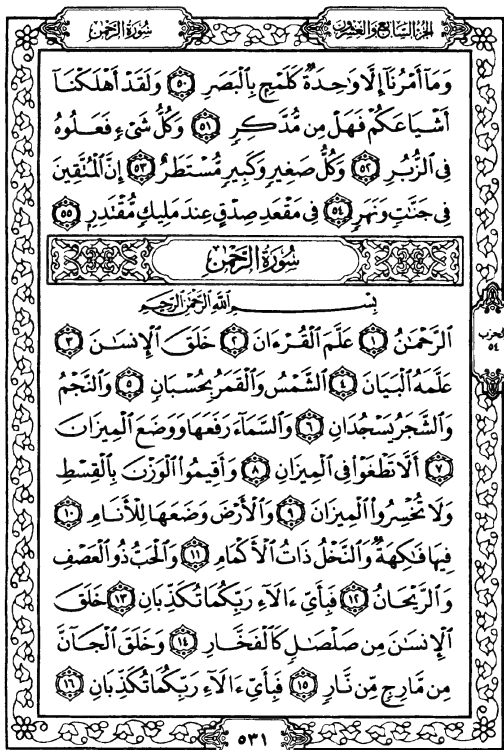 سُورَةُ الرَّحْمٰن
الجُزءُ السَّابِع وَالعِشرُون
وَمَآ أَمْرُنَآ إِلَّا وَٰحِدَةٌ كَلَمْحٍۭ بِٱلْبَصَرِ ٥٠ وَلَقَدْ أَهْلَكْنَآ
أَشْيَاعَكُمْ فَهَلْ مِن مُّدَّكِرٍ ٥١ وَكُلُّ شَىْءٍ فَعَلُوهُ
فِى ٱلزُّبُرِ ٥٢ وَكُلُّ صَغِيرٍ وَكَبِيرٍ مُّسْتَطَرٌ ٥٣ إِنَّ ٱلْمُتَّقِينَ
فِى جَنَّٰتٍ وَنَهَرٍ ٥٤ فِى مَقْعَدِ صِدْقٍ عِندَ مَلِيكٍ مُّقْتَدِرٍۭ ٥٥
سُورَةُ الرَّحْمٰن
بِسْمِ ٱللَّهِ ٱلرَّحْمَٰنِ ٱلرَّحِيمِ
ٱلرَّحْمَٰنُ ١ عَلَّمَ ٱلْقُرْءَانَ ٢ خَلَقَ ٱلْإِنسَٰنَ ٣
عَلَّمَهُ ٱلْبَيَانَ ٤ ٱلشَّمْسُ وَٱلْقَمَرُ بِحُسْبَانٍ ٥ وَٱلنَّجْمُ
وَٱلشَّجَرُ يَسْجُدَانِ ٦ وَٱلسَّمَآءَ رَفَعَهَا وَوَضَعَ ٱلْمِيزَانَ
٧ أَلَّا تَطْغَوْا۟ فِى ٱلْمِيزَانِ ٨ وَأَقِيمُوا۟ ٱلْوَزْنَ بِٱلْقِسْطِ
وَلَا تُخْسِرُوا۟ ٱلْمِيزَانَ ٩ وَٱلْأَرْضَ وَضَعَهَا لِلْأَنَامِ ١٠
فِيهَا فَٰكِهَةٌ وَٱلنَّخْلُ ذَاتُ ٱلْأَكْمَامِ ١١ وَٱلْحَبُّ ذُو ٱلْعَصْفِ
وَٱلرَّيْحَانُ ١٢ فَبِأَىِّ ءَالَآءِ رَبِّكُمَا تُكَذِّبَانِ ١٣ خَلَقَ
ٱلْإِنسَٰنَ مِن صَلْصَٰلٍ كَٱلْفَخَّارِ ١٤ وَخَلَقَ ٱلْجَآنَّ
مِن مَّارِجٍ مِّن نَّارٍ ١٥ فَبِأَىِّ ءَالَآءِ رَبِّكُمَا تُكَذِّبَانِ ١٦
الحزب
٥٤
٥٣١